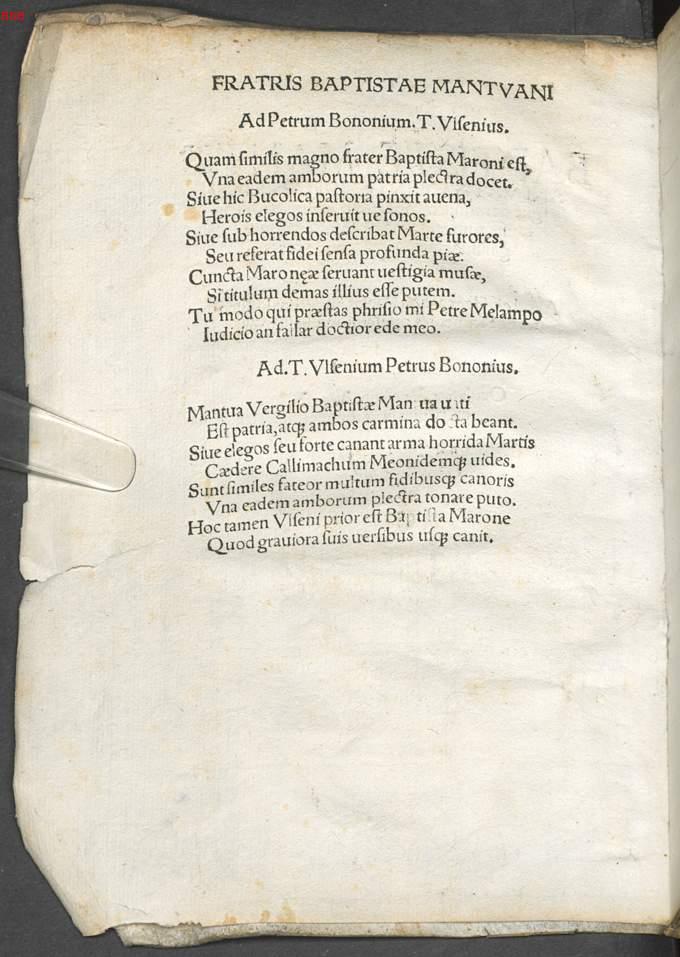 668
FRATRIS BAPTISTAE MANTVANI
Ad Petrum Bononium. T. Vlſenius.
Quam ſimilis magno frater Baptiſta Maroni eſt,
Vna eadem amborum patria plectra docet.
Siue hic Bucolica paſtoria pinxit auena,
Herois elegos inſeruit ue ſonos.
Siue ſub horrendos deſcribat Marte furores,
Seu referat fidei ſenſa profunda piæ.
Cuncta Maronęæ ſeruant ueſtigia muſæ,
Si titulum demas illius eſſe putem.
Tu modo qui præſtas phriſio mi Petre Melampo
Iudicio an fallar doctior ede meo.
Ad. T. Vlſenium Petrus Bononius.
Mantua Vergilio Baptiſtæ Mantua uati
Eſt patria, atqꝫ ambos carmina docta beant.
Siue elegos ſeu forte canant arma horrida Martis
Cædere Callimachum Meonidemqꝫ uides.
Sunt ſimiles fateor multum fidibusqꝫ canoris
Vna eadem amborum plectra tonare puto.
Hoc tamen Vlſeni prior eſt Baptiſta Marone
Quod grauiora ſuis uerſibus uſqꝫ canit.